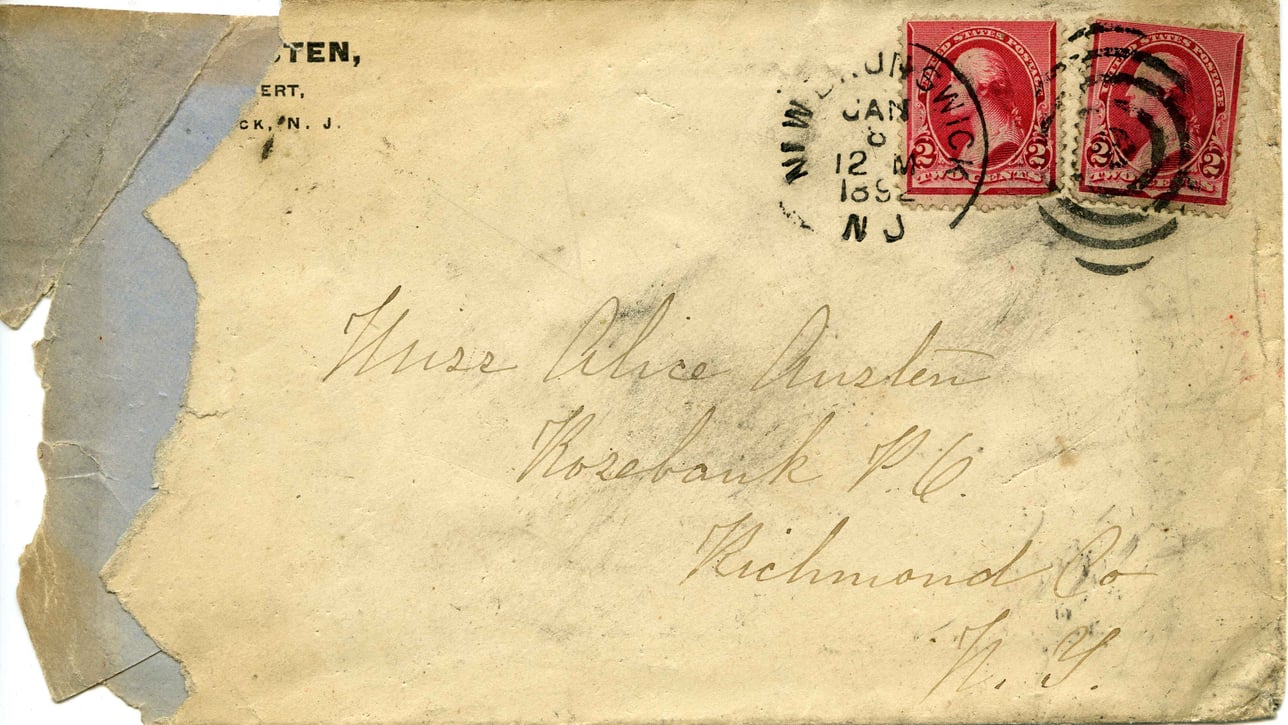 TEN,
ERT,
CK, N. J.
NEW BRUNSWICK
JAN
8
12 M
1892
N J
UNITED STATES POSTAGE
2 2
TWO CENTS
UNITED STATES POSTAGE
2 2
TWO CENTS
Miss Alice Austen
Rosebank P. O.
Richmond Co
N. Y.